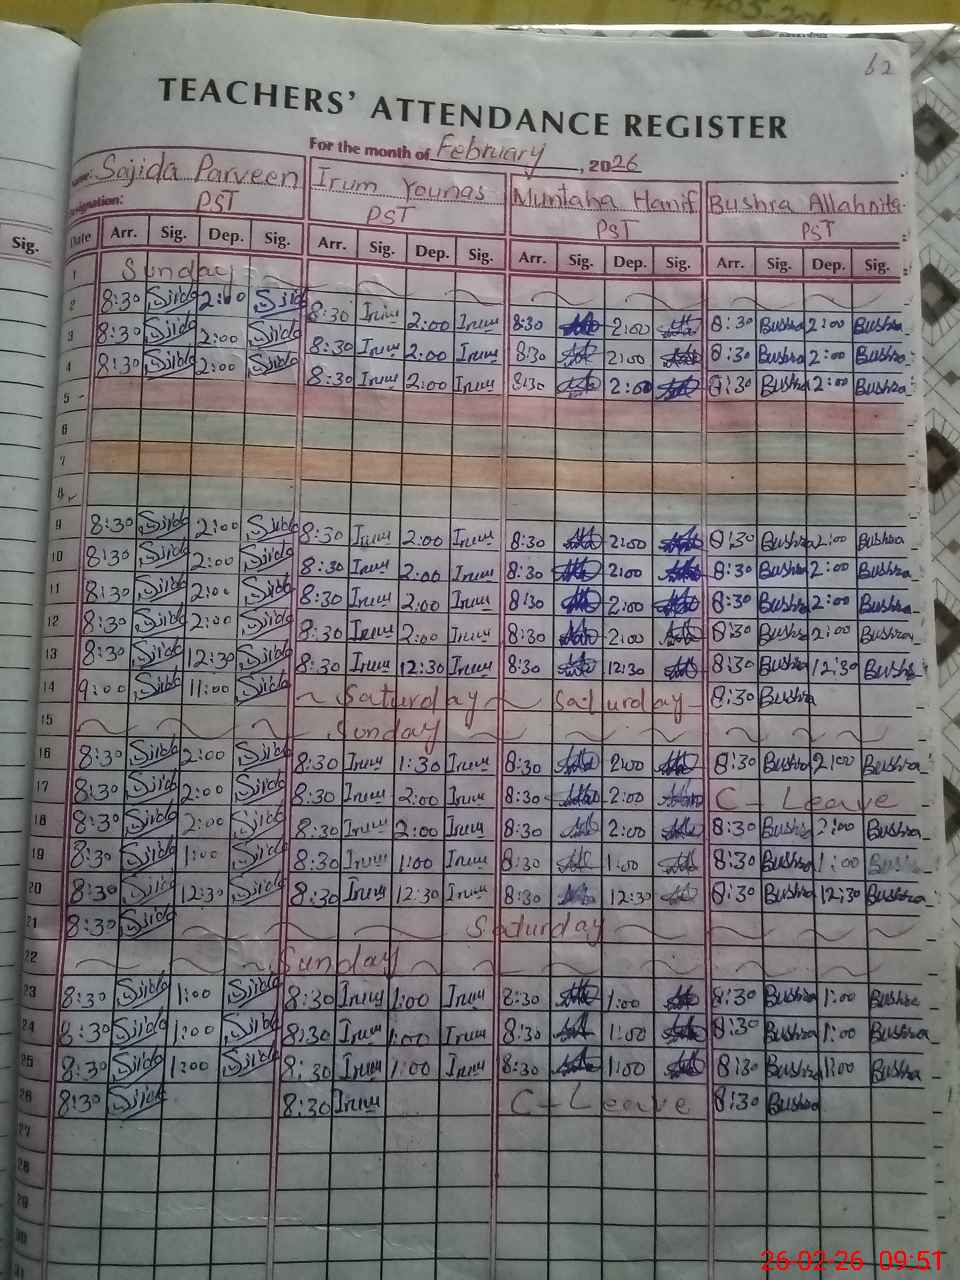 62
TEACHERS' ATTENDANCE REGISTER
For the month of February, 2026
Name: Sajida Parveen Irum Younas Muntaha Hanif Bushra Allahnita
Designation: PST PST PST PST
Sig. Date Arr. Sig. Dep. Sig. Arr. Sig. Dep. Sig. Arr. Sig. Dep. Sig. Arr. Sig. Dep. Sig.
1 Sunday
2 8:30 2:00 8:30 Irum 2:00 Irum 8:30 2:00 8:30 Bushra 2:00 Bushra
3 8:30 2:00 8:30 Irum 2:00 Irum 8:30 2:00 8:30 Bushra 2:00 Bushra
4 8:30 2:00 8:30 Irum 2:00 Irum 8:30 2:00 8:30 Bushra 2:00 Bushra
5
6
7
8
9 8:30 2:00 8:30 Irum 2:00 Irum 8:30 2:00 8:30 Bushra 2:00 Bushra
10 8:30 2:00 8:30 Irum 2:00 Irum 8:30 2:00 8:30 Bushra 2:00 Bushra
11 8:30 2:00 8:30 Irum 2:00 Irum 8:30 2:00 8:30 Bushra 2:00 Bushra
12 8:30 2:00 8:30 Irum 2:00 Irum 8:30 2:00 8:30 Bushra 2:00 Bushra
13 8:30 12:30 8:30 Irum 12:30 Irum 8:30 12:30 8:30 Bushra 12:30 Bushra
14 9:00 11:00 Saturday Saturday 8:30 Bushra
15 Sunday
16 8:30 2:00 8:30 Irum 1:30 Irum 8:30 2:00 8:30 Bushra 2:00 Bushra
17 8:30 2:00 8:30 Irum 2:00 Irum 8:30 2:00 C-Leave
18 8:30 2:00 8:30 Irum 2:00 Irum 8:30 2:00 8:30 Bushra 2:00 Bushra
19 8:30 1:00 8:30 Irum 1:00 Irum 8:30 1:00 8:30 Bushra 1:00 Bushra
20 8:30 12:30 8:30 Irum 12:30 Irum 8:30 12:30 8:30 Bushra 12:30 Bushra
21 8:30 Saturday
22 Sunday
23 8:30 1:00 8:30 Irum 1:00 Irum 8:30 1:00 8:30 Bushra 1:00 Bushra
24 8:30 1:00 8:30 Irum 1:00 Irum 8:30 1:00 8:30 Bushra 1:00 Bushra
25 8:30 1:00 8:30 Irum 1:00 Irum 8:30 1:00 8:30 Bushra 1:00 Bushra
26 8:30 8:30 Irum C-Leave 8:30 Bushra
27
28
29
30
31
26-02-26 09:51